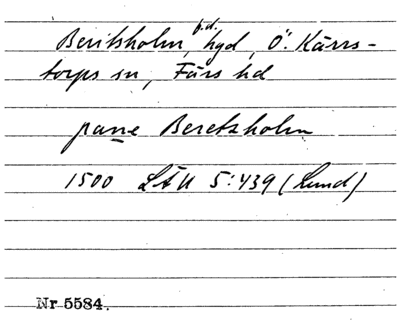 Beritsholm, f.d. hgd, Ö. Kärrs-
torps sn, Färs hd
panne Beretzholm
1500 LÄU 5:439 (Lund)
Nr 5584.